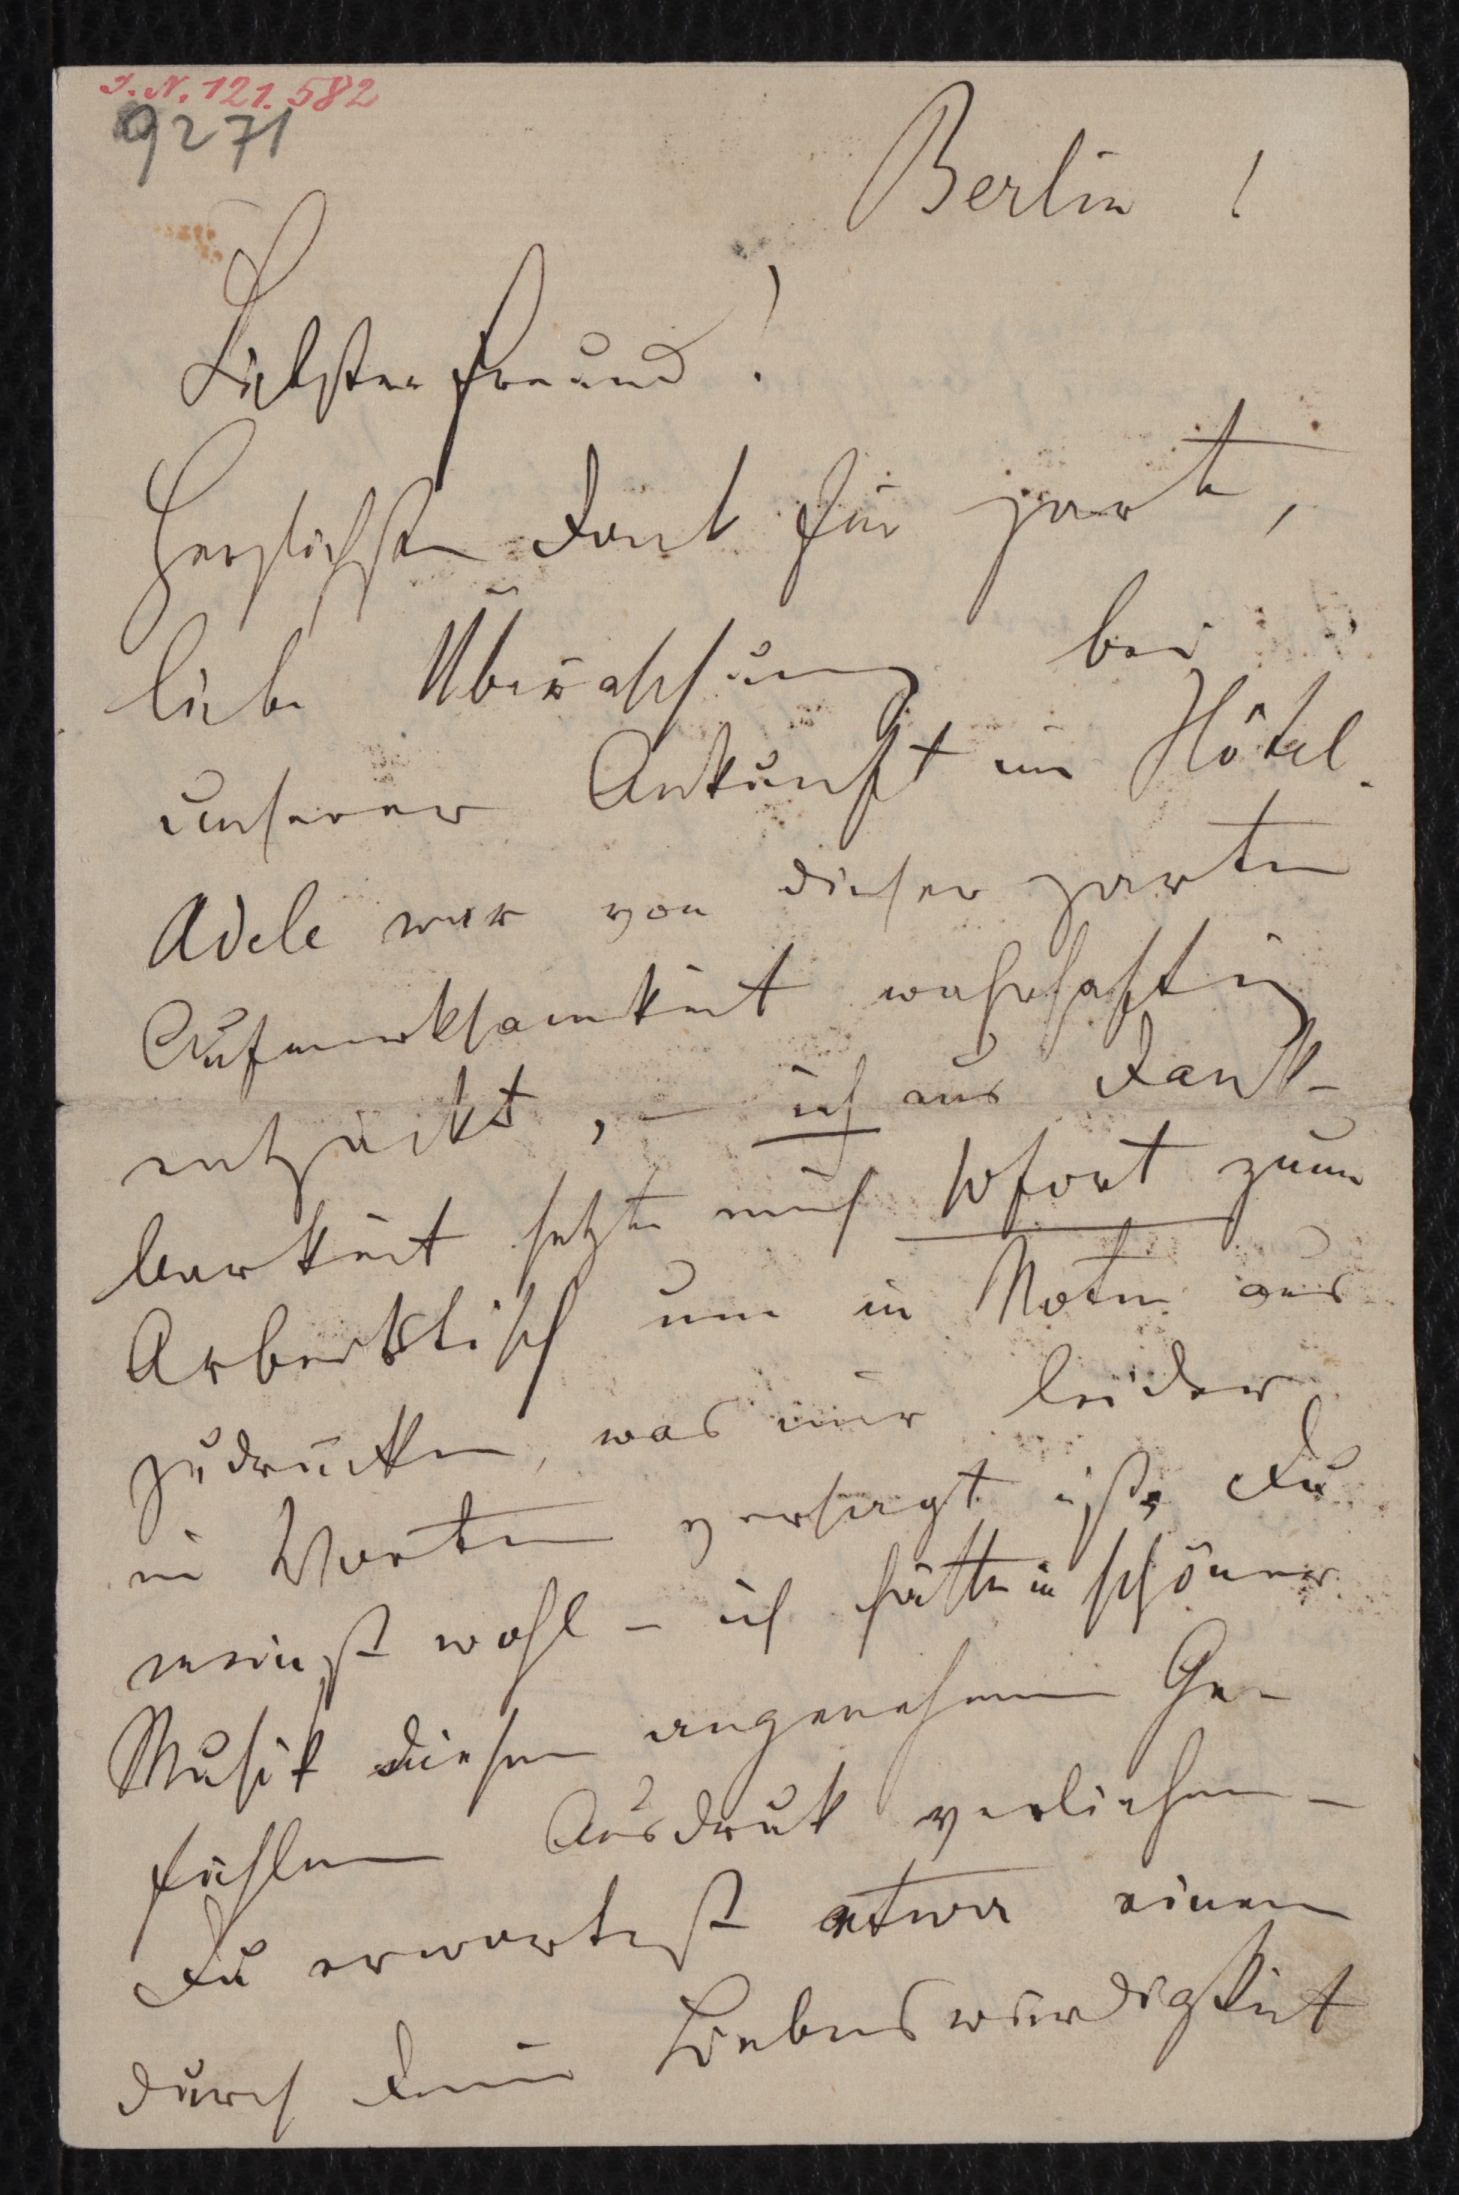 I. N. 121.582
9271
Berlin !
Liebster Freund !
Herzlichsten Dank für zarte,
liebe Überraschung bei
unserer Ankunft im Hôtel.
Adele war von dieser zarten
Aufmerksamkeit wahrhaftig
entzückt, – ich aus Dank-
barkeit setzte mich sofort zum
Arbeitstisch um in Noten aus
zudrücken, was mir leider
in Worten versagt ist. Du
meinst wohl – ich hätte in schöner
Musik diesen angenehmen Ge-
fühlen Ausdruck verliehen –
Du erwartest etwa einen
durch Deine Liebenswürdigkeit